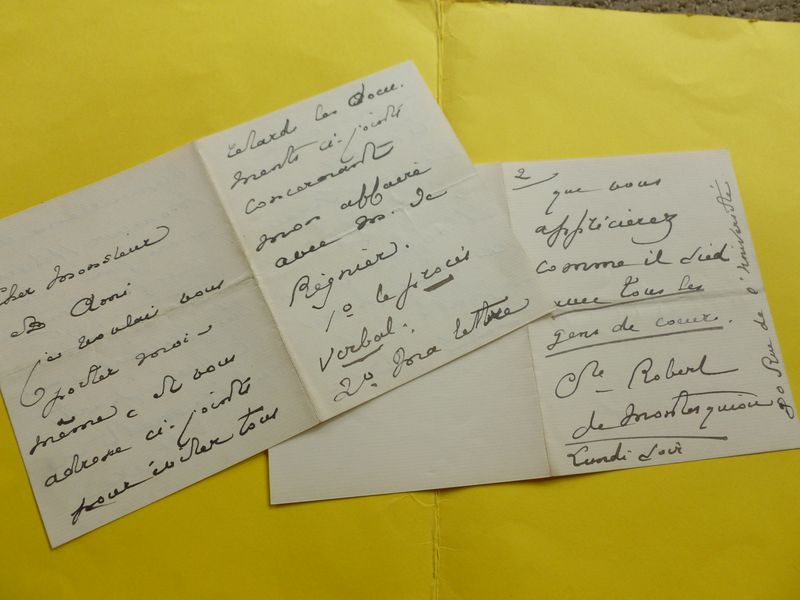 Cher Monsieur
et Ami
je voulais vous
porter moi-
même et vous
adresse ci-joints
pour éviter tous
retards les docu-
ments ci-joints
concernant
mon affaire
avec M. de
Régnier.
1º le procès
verbal.
2º ma lettre
2
que vous
apprécierez
comme il sied
avec tous les
gens de coeur.
Cte Robert
de Montesquiou
Lundi soir
80 Rue de l'Université.